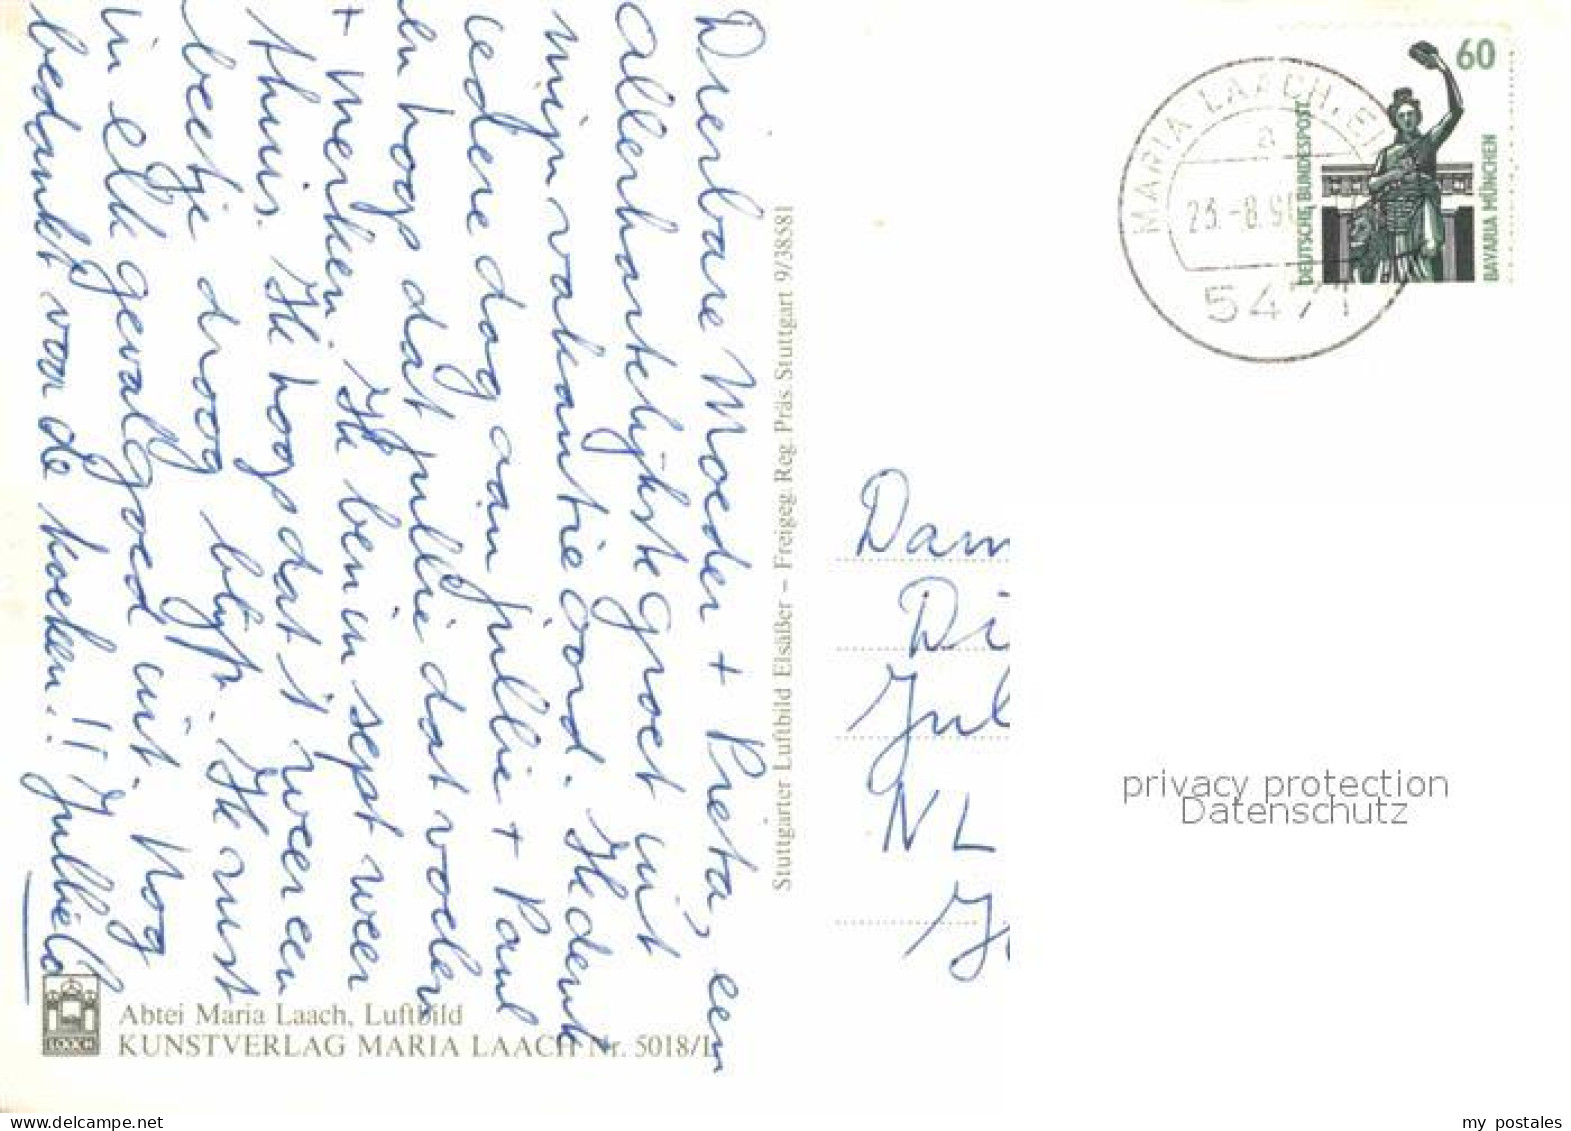 Dierbare Moeder + Preta, een
allerhartelijkste groet uit
mijn vakantieoord. Ik denk
iedere dag aan jullie + Paul
en hoop dat jullie dat voelen
+ merken. Ik ben in sept weer
thuis. Ik hoop dat 't weer een
beetje droog blijft. Ik rust
in elk geval goed uit. Nog
bedankt voor de koeken!!
Stuttgarter Luftbild Elsäßer – Freigeg. Reg. Präs. Stuttgart 9/38581
LAACH
Abtei Maria Laach, Luftbild
KUNSTVERLAG MARIA LAACH Nr. 5018/L
MARIA LAACH, EI
a
23.-8.9
5471
60
DEUTSCHE BUNDESPOST
BAVARIA MÜNCHEN
Dam
Di
Jul
NL
privacy protection
Datenschutz
my postales